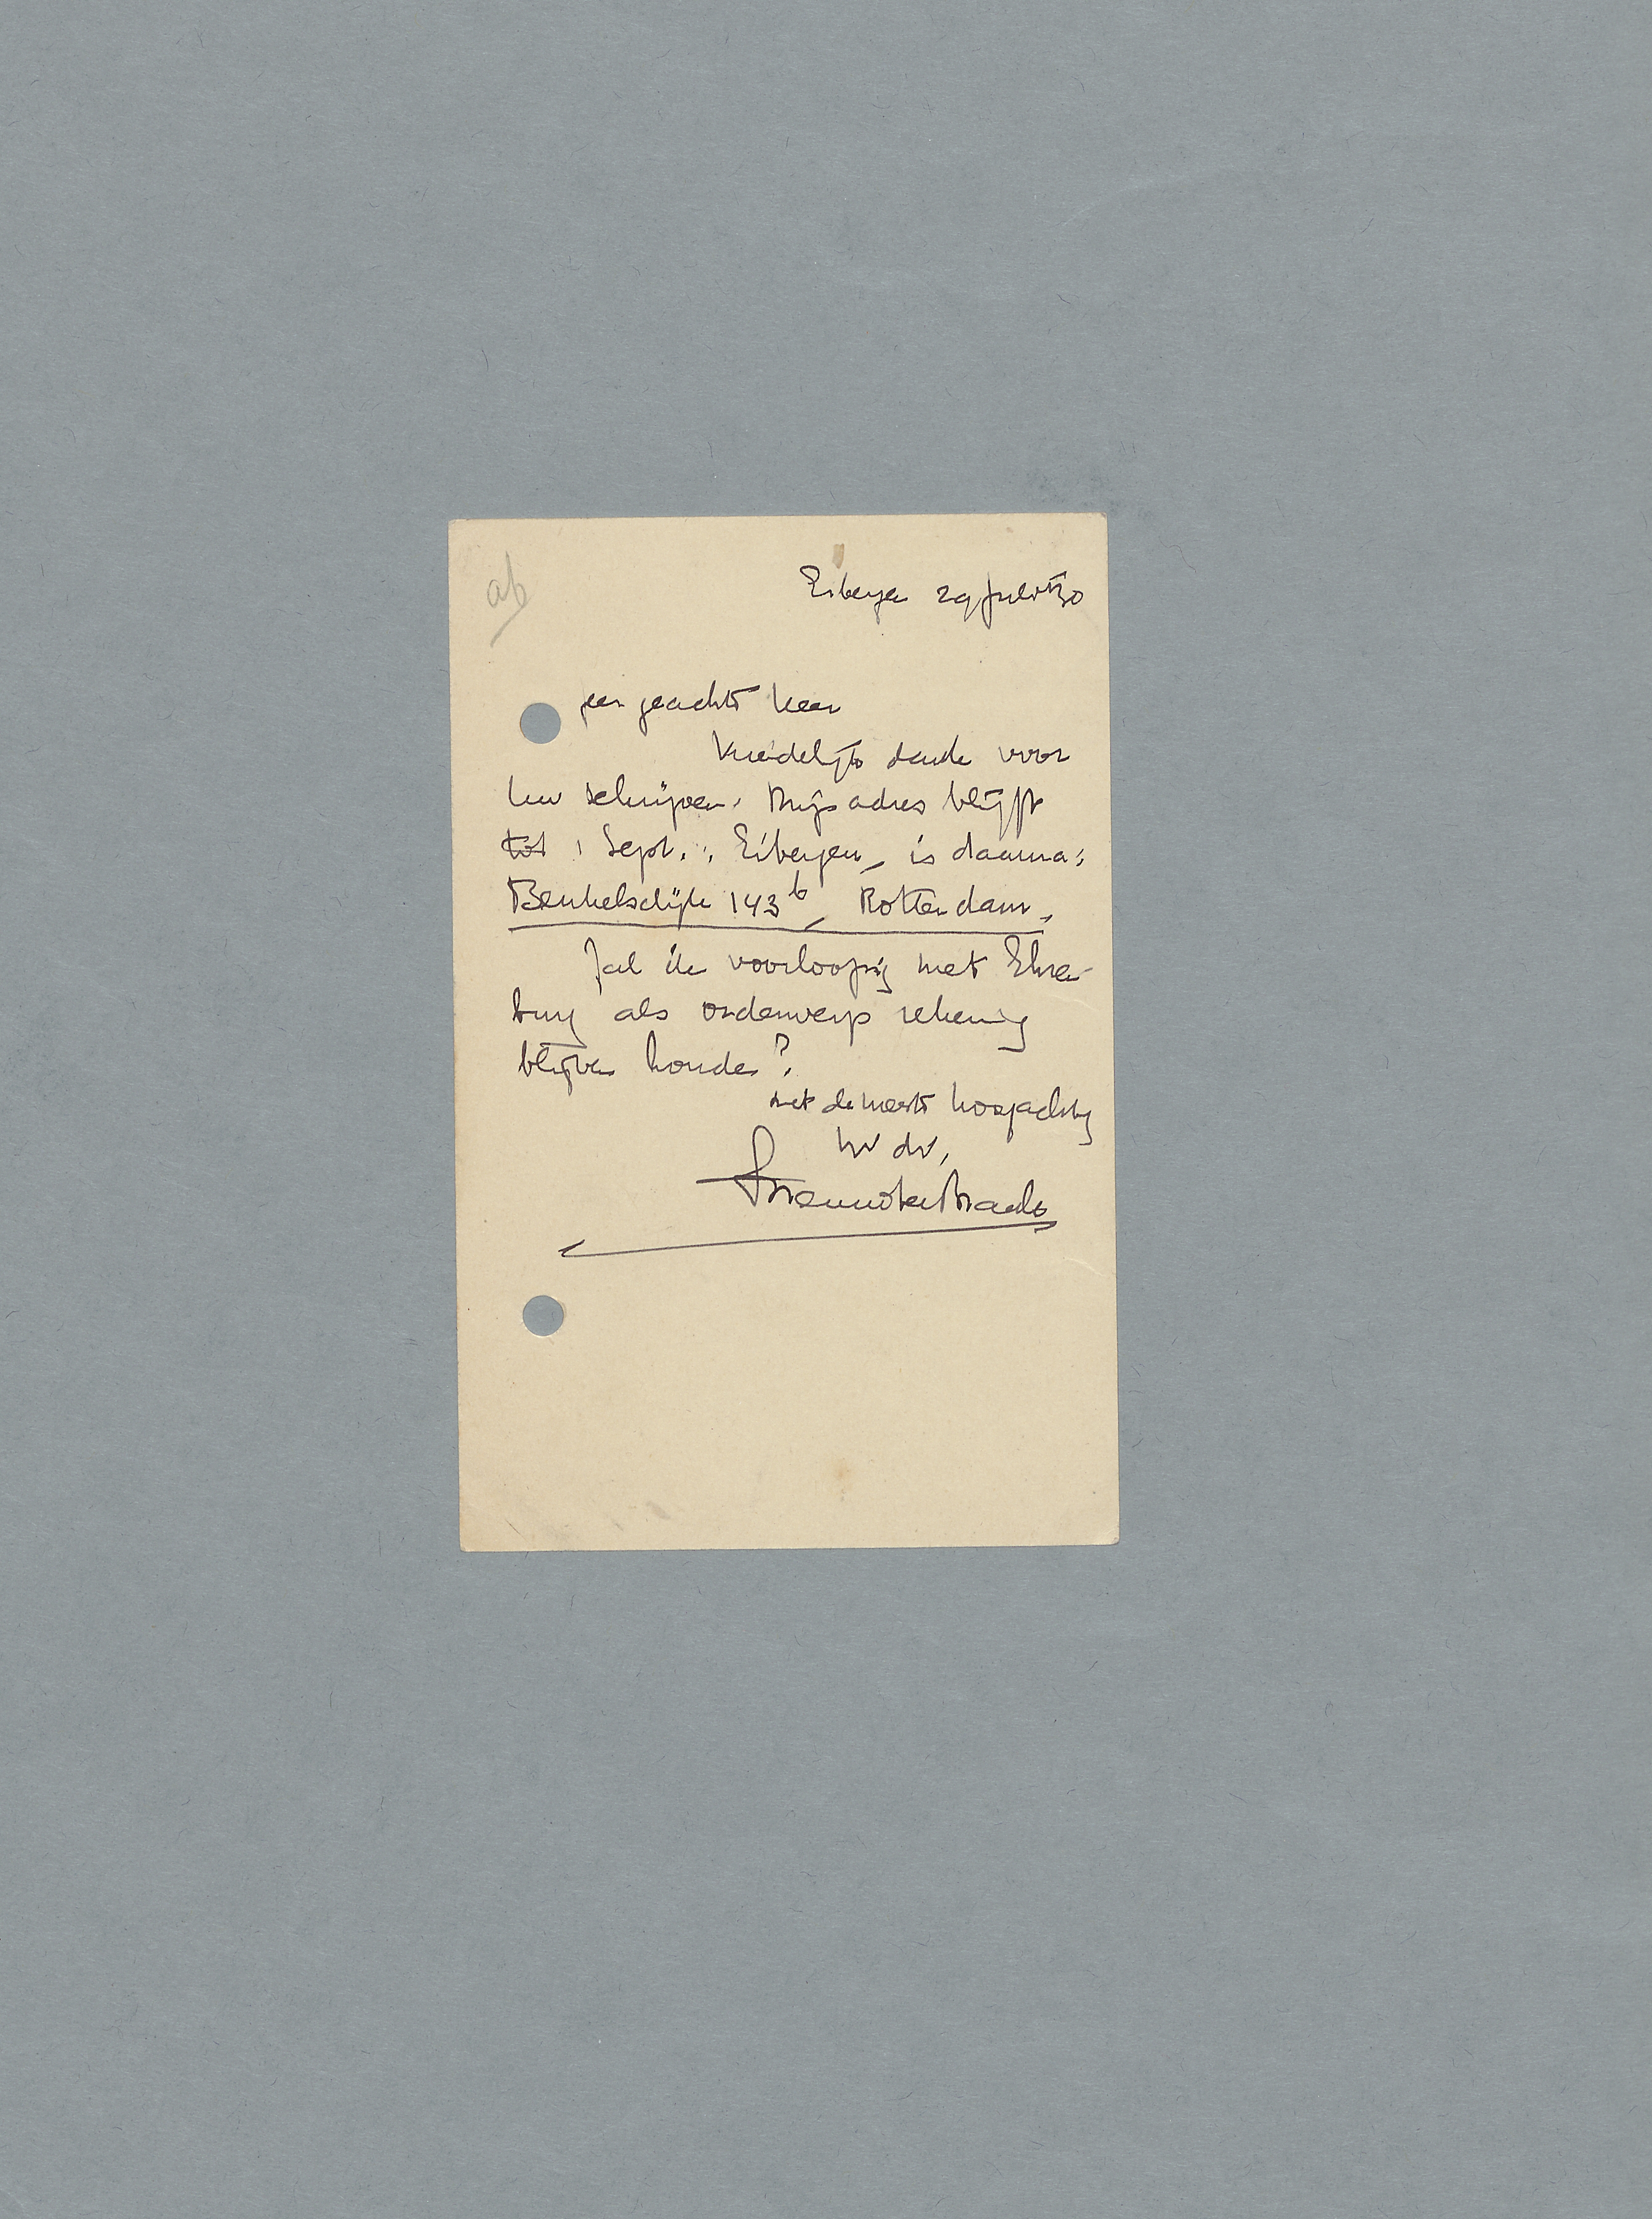 ab
Eibergen 29 Juli '30
zeer geachte heer
Vriendelijk dank voor
Uw schrijven. Mijn adres blijft
tot 1 Sept.: Eibergen, is daarna:
Beukelsdijk 143b, Rotterdam.
Zal ik voorloopig met Ehren-
burg als onderwerp rekening
blijven houden?
met de meeste hoogachting
Uw dw,
Menno ter Braak